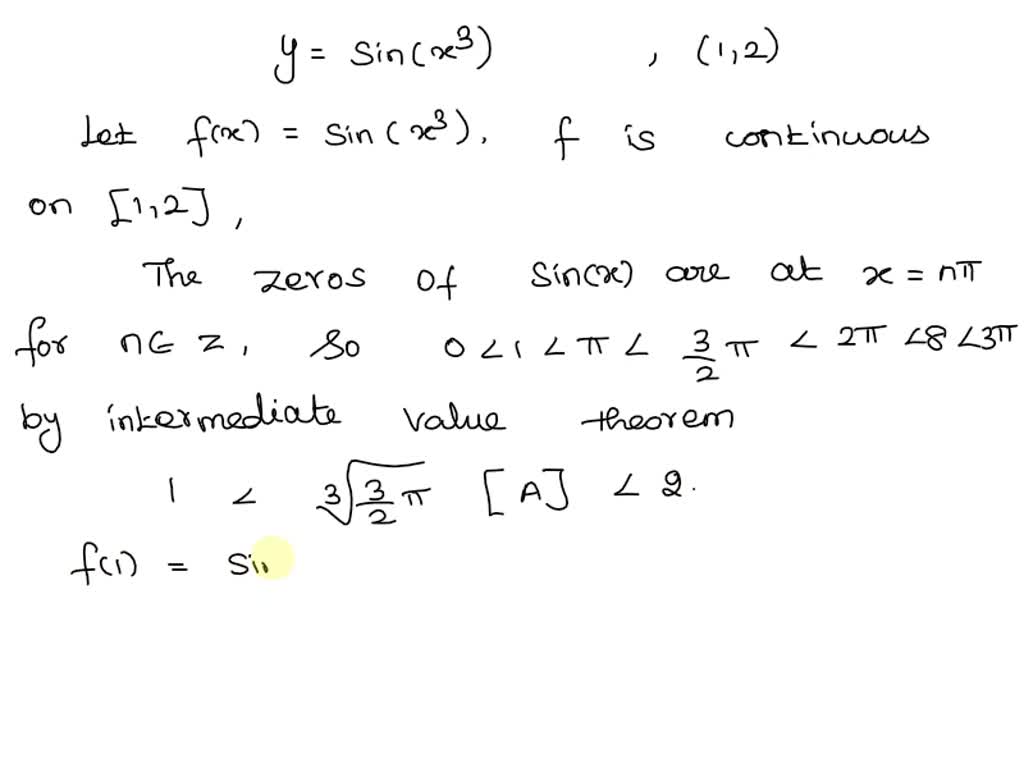 y = Sin(x³) , (1,2)
Let f(x) = Sin(x³). f is continuous
on [1,2],
The zeros of Sin(x) are at x = nπ
for n∈ Z, So 0 < 1 < π < 3/2 π < 2π < 8 < 3π
by intermediate value theorem
1 < ∛(3/2 π) [A] < 2.
f(1) = Sin